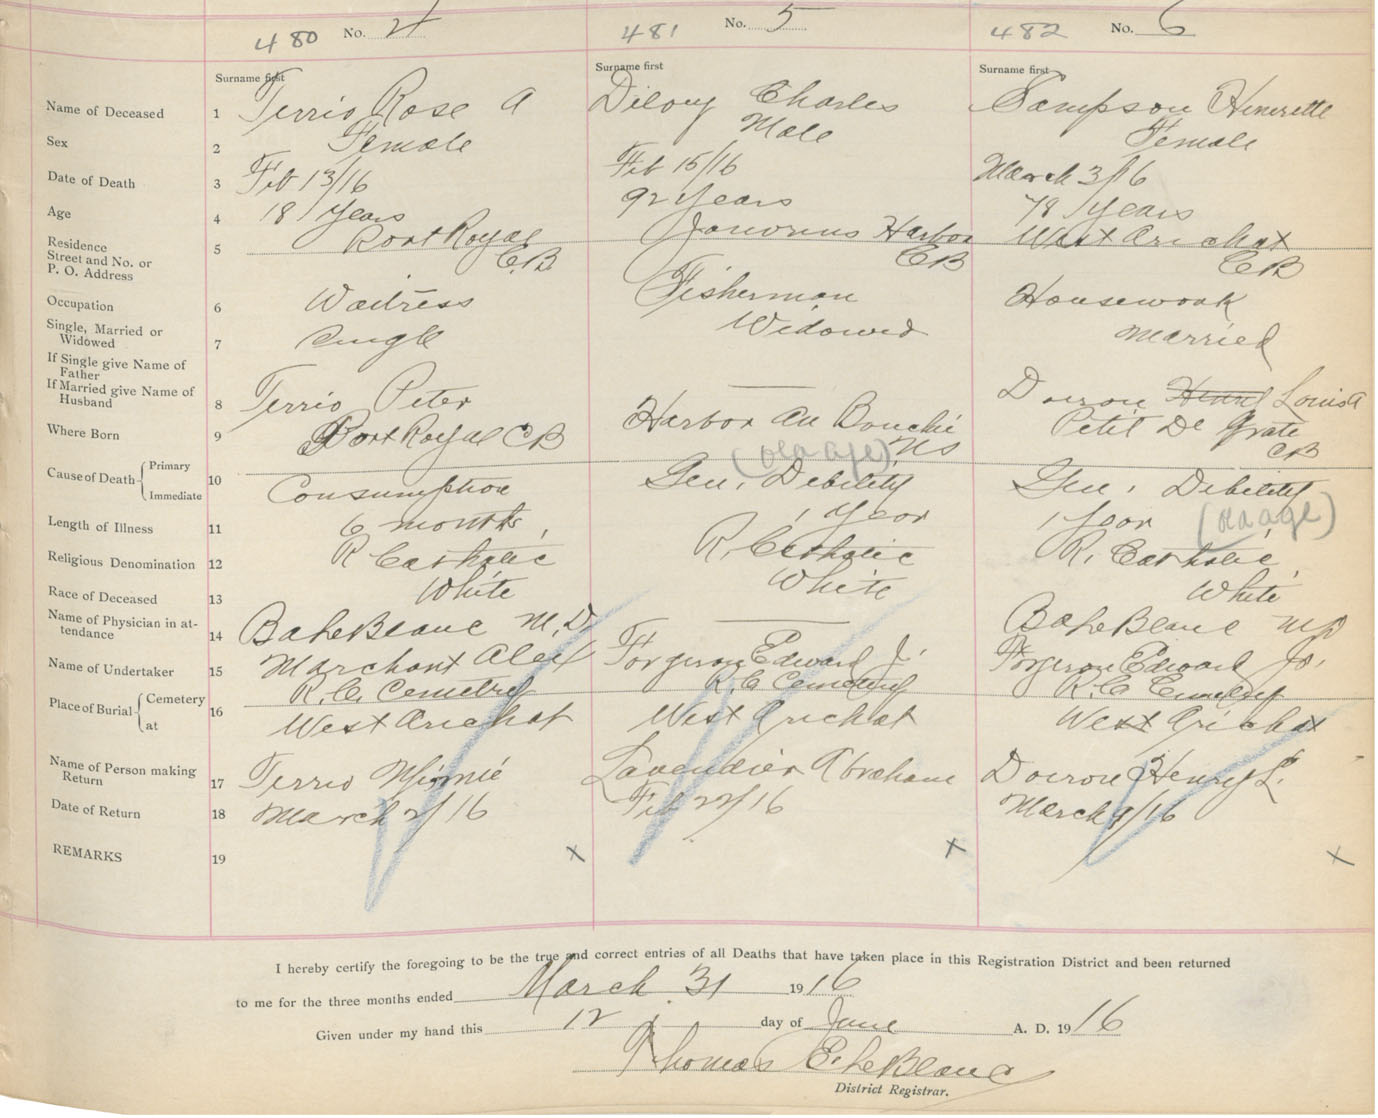 480 No. 4
481 No. 5
482 No. 6
Surname first
Surname first
Surname first
Name of Deceased 1 Terrio Rose A Diloey Charles Sampson Henerette
Sex 2 Female Male Female
Date of Death 3 Feb 13/16 Feb 15/16 March 3/16
Age 4 18 years 92 years 78 years
Residence
Street and No. or
P. O. Address
5 Port Royal Janvrins Harbor West Arichat
C.B. CB CB
Occupation 6 Waitress Fisherman Housework
Single, Married or
Widowed
7 Single Widowed married
If Single give Name of
Father
If Married give Name of
Husband
8 Terrio Peter — Doiron Henry Louis
Where Born 9 Port Royal CB Harbor Au Bouchie Petit De Grate
NS CB
Cause of Death Primary
Immediate
10 Consumption (old age) Gen. Debility Gen. Debility
Length of Illness 11 6 months 1 year 1 year (old age)
Religious Denomination 12 R Catholic R. Catholic R. Catholic
Race of Deceased 13 White White White
Name of Physician in at-
tendance
14 BaLeBlanc M.D. — BaLeBlanc MD
Name of Undertaker 15 Marchant Alex Forgeron Edward J. Forgeron Edward Jr.
Place of Burial Cemetery
at
16 R.C. Cemetry R.C Cemetery R.C Cemetery
West Arichat West Arichat West Arichat
Name of Person making
Return
17 Terrio Minnie Lavendier Abraham Doiron Henry L.
Date of Return 18 March 2/16 Feb 22/16 March 9/16
REMARKS 19 x x x
I hereby certify the foregoing to be the true and correct entries of all Deaths that have taken place in this Registration District and been returned
to me for the three months ended March 31 1916
Given under my hand this 12 day of June A. D. 1916
Thomas E. LeBlanc
District Registrar.